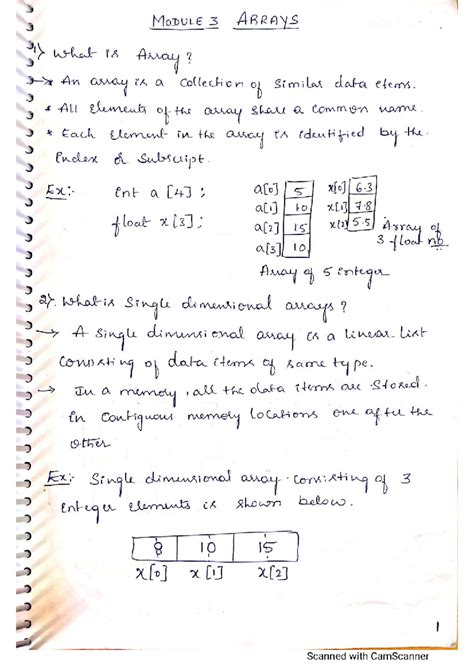 MODULE 3 ARRAYS
1) What is Array?
→* An array is a collection of similar data items.
* All elements of the array share a common name.
* Each element in the array is identified by the
index or subscript.
Ex:- int a[4]; a[0] 5 x[0] 6.3
a[1] 10 x[1] 7.8
float x[3]; a[2] 15 x[2] 5.5 Array of
a[3] 10 3 float no
Array of 5 integer
2) What is Single dimensional arrays?
→ A Single dimensional array is a linear list
consisting of data items of same type.
→ In a memory, all the data items are stored
in contiguous memory locations one after the
other
Ex:- Single dimensional array consisting of 3
integer elements is shown below.
8 10 15
x[0] x[1] x[2]
1
Scanned with CamScanner